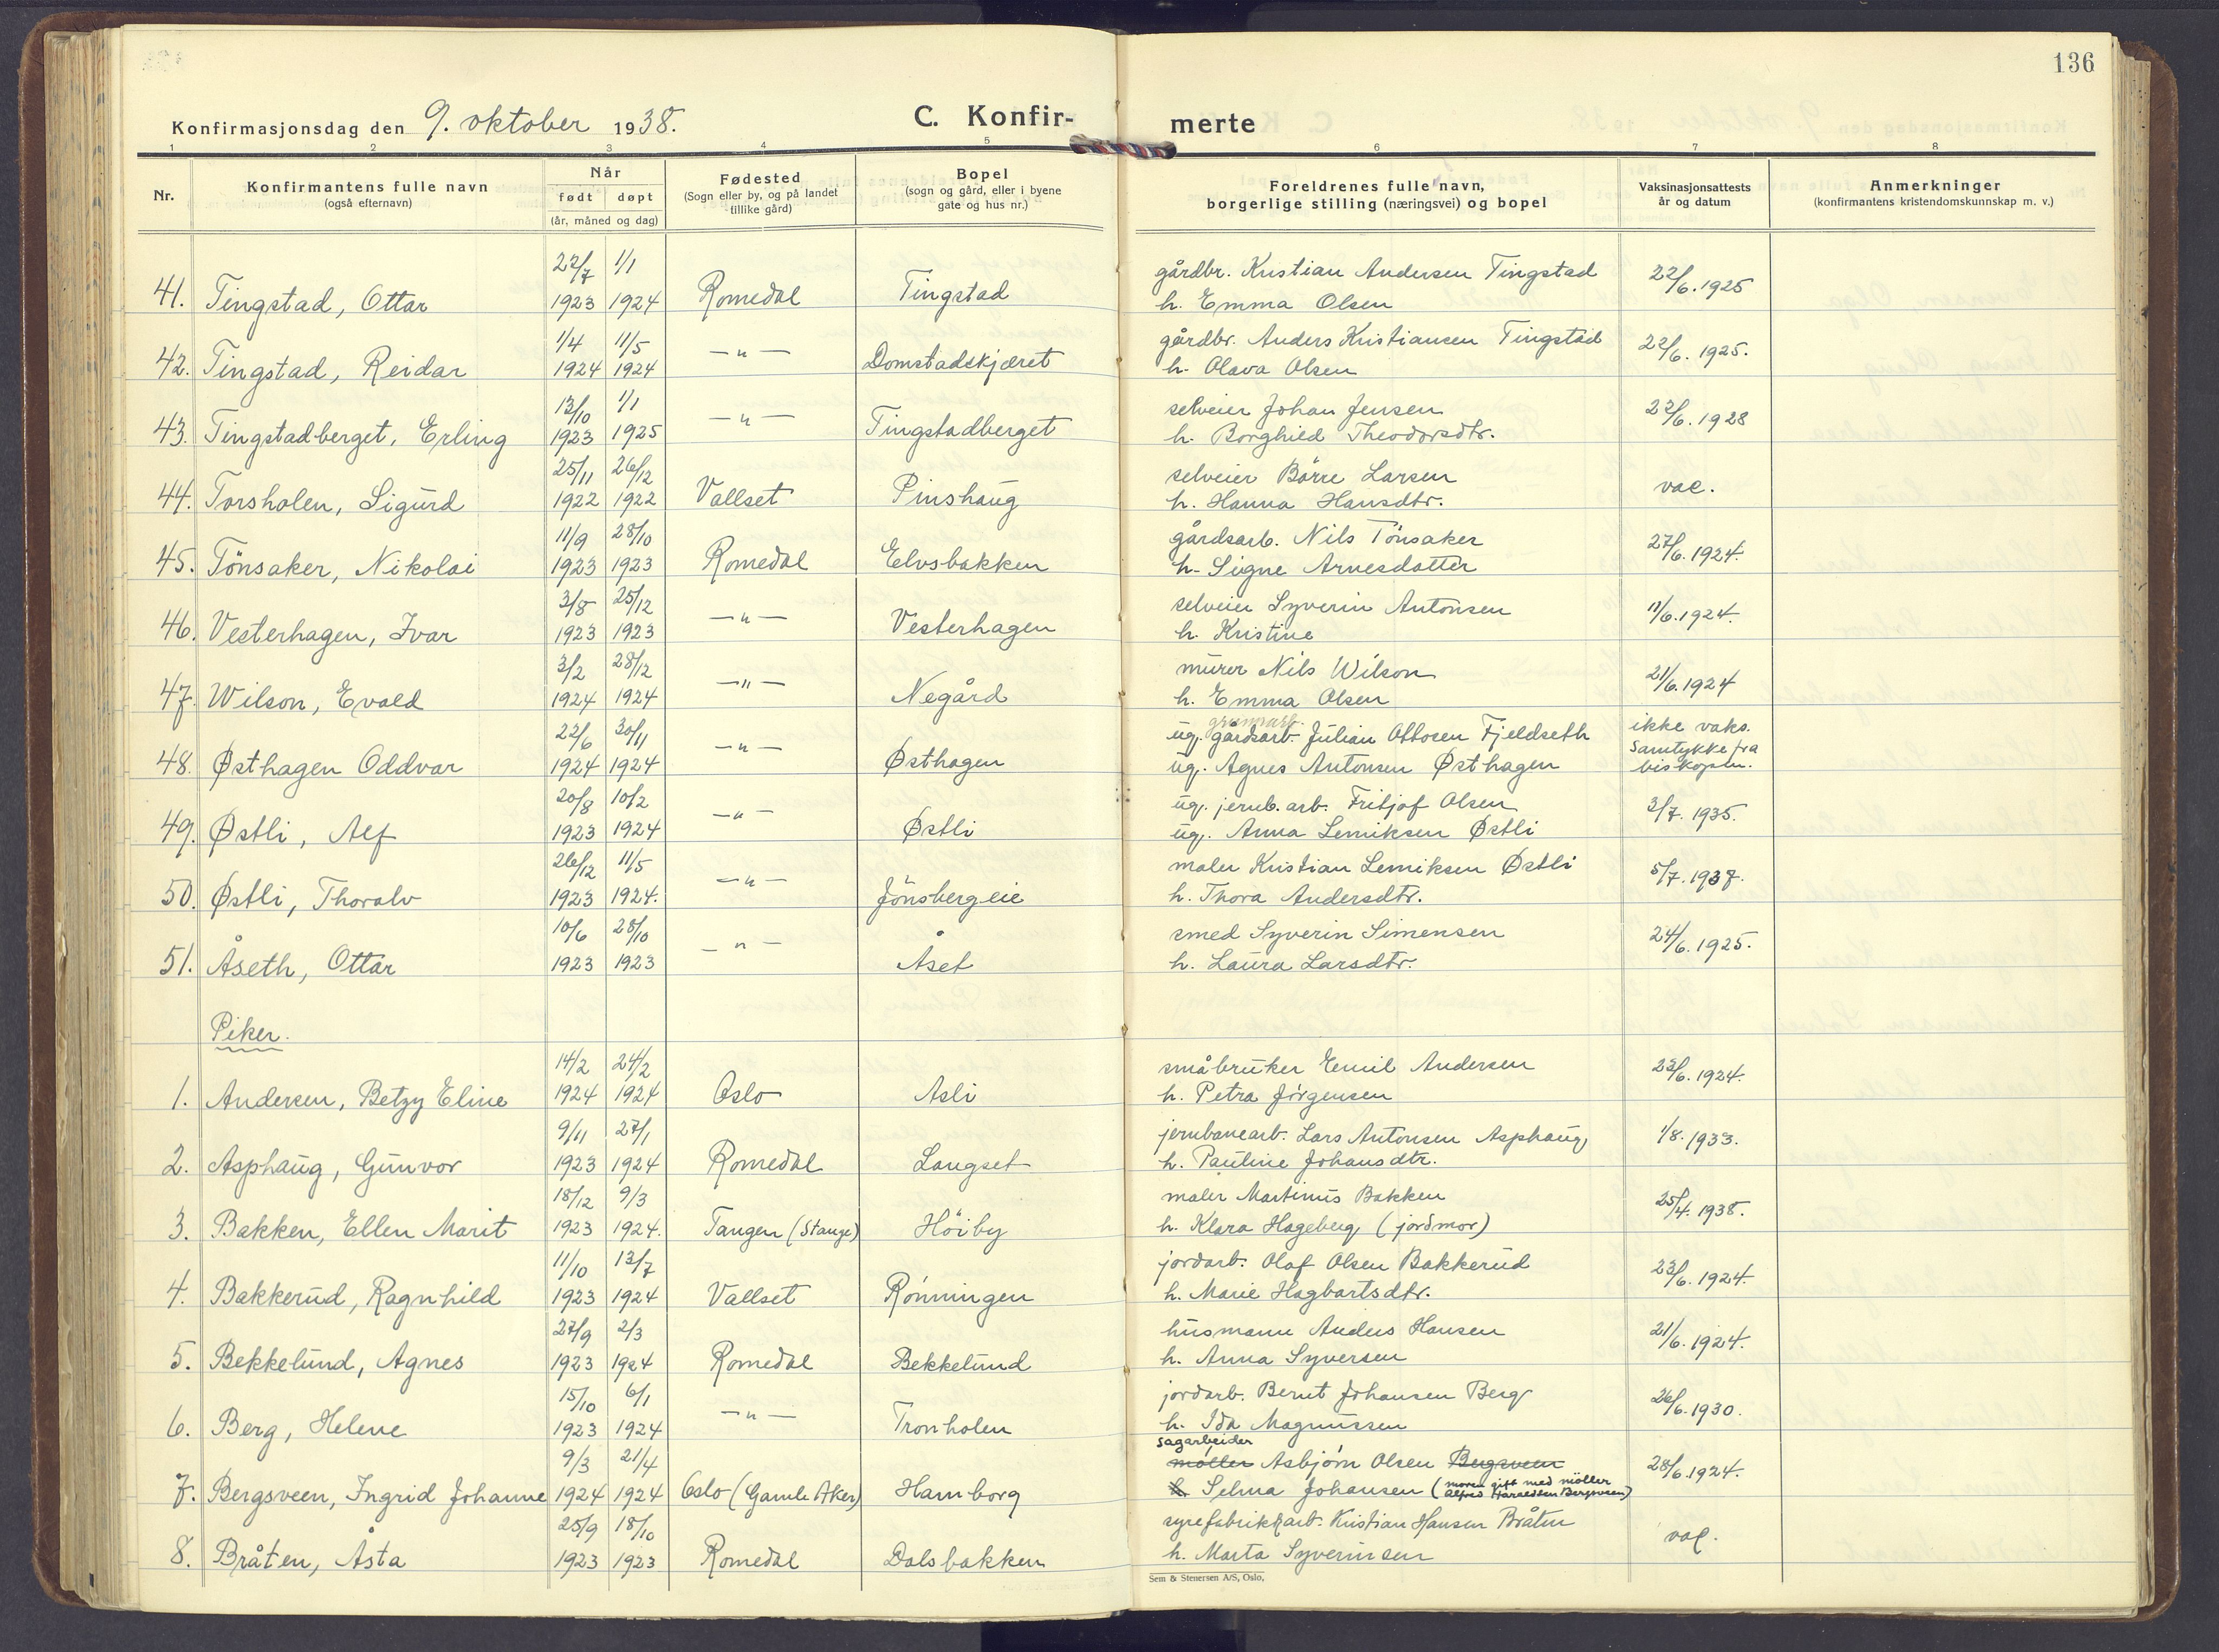 136
Konfirmasjonsdag den 9. oktober 1938.
C. Konfir-
merte
1 2 3 4 5 6 7 8
Nr.
Konfirmantens fulle navn
(også efternavn)
Når
født døpt
(år, måned og dag)
Fødested
(Sogn eller by, og på landet
tillike gård)
Bopel
(sogn og gård, eller i byene
gate og hus nr.)
Foreldrenes fulle navn,
borgerlige stilling (næringsvei) og bopel
Vaksinasjonsattests
år og datum
Anmerkninger
(konfirmantens kristendomskunnskap m. v.)
22/7 1/1 gårdbr. Kristian Andersen Tingstad 22/6. 1925
41. Tingstad, Ottar 1923 1924 Romedal Tingstad h. Emma Olsen
1/4 11/5 gårdbr. Anders Kristiansen Tingstad 22/6. 1925.
42. Tingstad, Reidar 1924 1924 —"— Domstadskjæret h. Olava Olsen
13/10 1/1 selveier Johan Jensen 22/6. 1928
43. Tingstadberget, Erling 1923 1925 —"— Tingstadberget h. Borghild Theodorsdtr.
25/11 26/12 selveier Börre Larsen vac.
44. Torsholen, Sigurd 1922 1922 Vallset Pinshaug h. Hanna Hansdtr.
11/9 28/10 gårdsarb. Nils Tönsaker 27/6. 1924.
45. Tönsaker, Nikolai 1923 1923 Romedal Elvsbakken h. Signe Arnesdatter
3/8 25/12 selveier Syverin Antonsen 11/6. 1924.
46. Vesterhagen, Ivar 1923 1923 —"— Vesterhagen h. Kristine
3/2 28/12 murer Nils Wilson 21/6. 1924
47. Wilson, Evald 1924 1924 —"— Negård h. Emma Olsen
22/6 30/11 ug. gårdsarb. Julian Ottosen Fjeldseth ikke vaks.
Samtykke fra
48. Østhagen Oddvar 1924 1924 —"— Østhagen ug. Agnes Antonsen Østhagen biskopen.
20/8 10/2 ug. jernb. arb. Fritjof Olsen 3/7. 1935.
49. Østli, Alf 1923 1924 —"— Østli ug. Anna Lemiksen Østli
26/12 11/5 maler Kristian Lemiksen Østli 5/7. 1937.
50. Østli, Thoralv 1923 1924. —"— Jönsbergeie h. Thora Andersdtr.
10/6 28/10 smed Syverin Simensen 24/6. 1925.
51. Åseth, Ottar 1923 1923 —"— Åset h. Laura Larsdtr.
Piker.
14/2 24/2 småbruker Emil Andersen 23/6. 1924.
1. Andersen, Betzy Eline 1924 1924 Oslo Asli h. Petra Jörgensen
9/11 27/1 jernbanearb. Lars Antonsen Asphaug 1/8. 1933.
2. Asphaug, Gunvor 1923 1924 Romedal Langset h. Pauline Johansdtr.
18/12 9/3 maler Martinus Bakken 25/4. 1938.
3. Bakken, Ellen Marit 1923 1924. Tangen (Stange) Höiby h. Klara Hageberg (jordmor)
11/10 13/7 jordarb. Olaf Olsen Bakkerud 23/6. 1924.
4. Bakkerud, Ragnhild 1923 1924 Vallset Rönningen h. Marie Hagbartsdtr.
27/9 2/3 husmann Anders Hansen 21/6. 1924.
5. Bekkelund, Agnes 1923 1924 Romedal Bekkelund h. Anna Syversen
15/10 6/1 jordarb. Bernt Johansen Berg 26/6. 1930.
6. Berg, Helene 1923 1924 —"— Tronholen h. Ida Magnussen
sagarbeider
9/3 21/4 möller Asbjörn Olsen Bergsveen 28/6. 1924.
7. Bergsveen, Ingrid Johanne 1924 1924 Oslo (Gamle Aker) Hamborg h. Selma Johansen (moren gift med möller
Alfred Haraldsen Bergsveen)
25/9 18/10 syrefabrikkarb. Kristian Hansen Bråten vac.
8. Bråten, Åsta 1923 1923 Romedal Dalsbakken h. Marta Syverinsen
Sem & Stenersen A/S, Oslo.